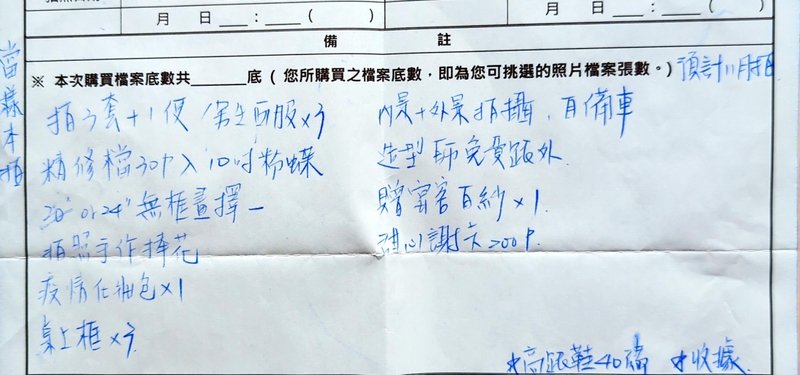 月 日 ___：___（ ） 月 日 ___：___（ ）
備 註
※ 本次購買檔案底數共______底（您所購買之檔案底數，即為您可挑選的照片檔案張數。）預計11月拍
當樣本拍
拍3套+1便/男生西服x3
精修檔30P入10吋粉蝶
20" or 24" 無框畫擇一
拍照手作捧花
化 包x1
桌上框x3
內景+外景拍攝，自備車
造型師免費跟外
贈 客 紗x1
甜心謝卡200P
*高跟鞋40碼 *收據